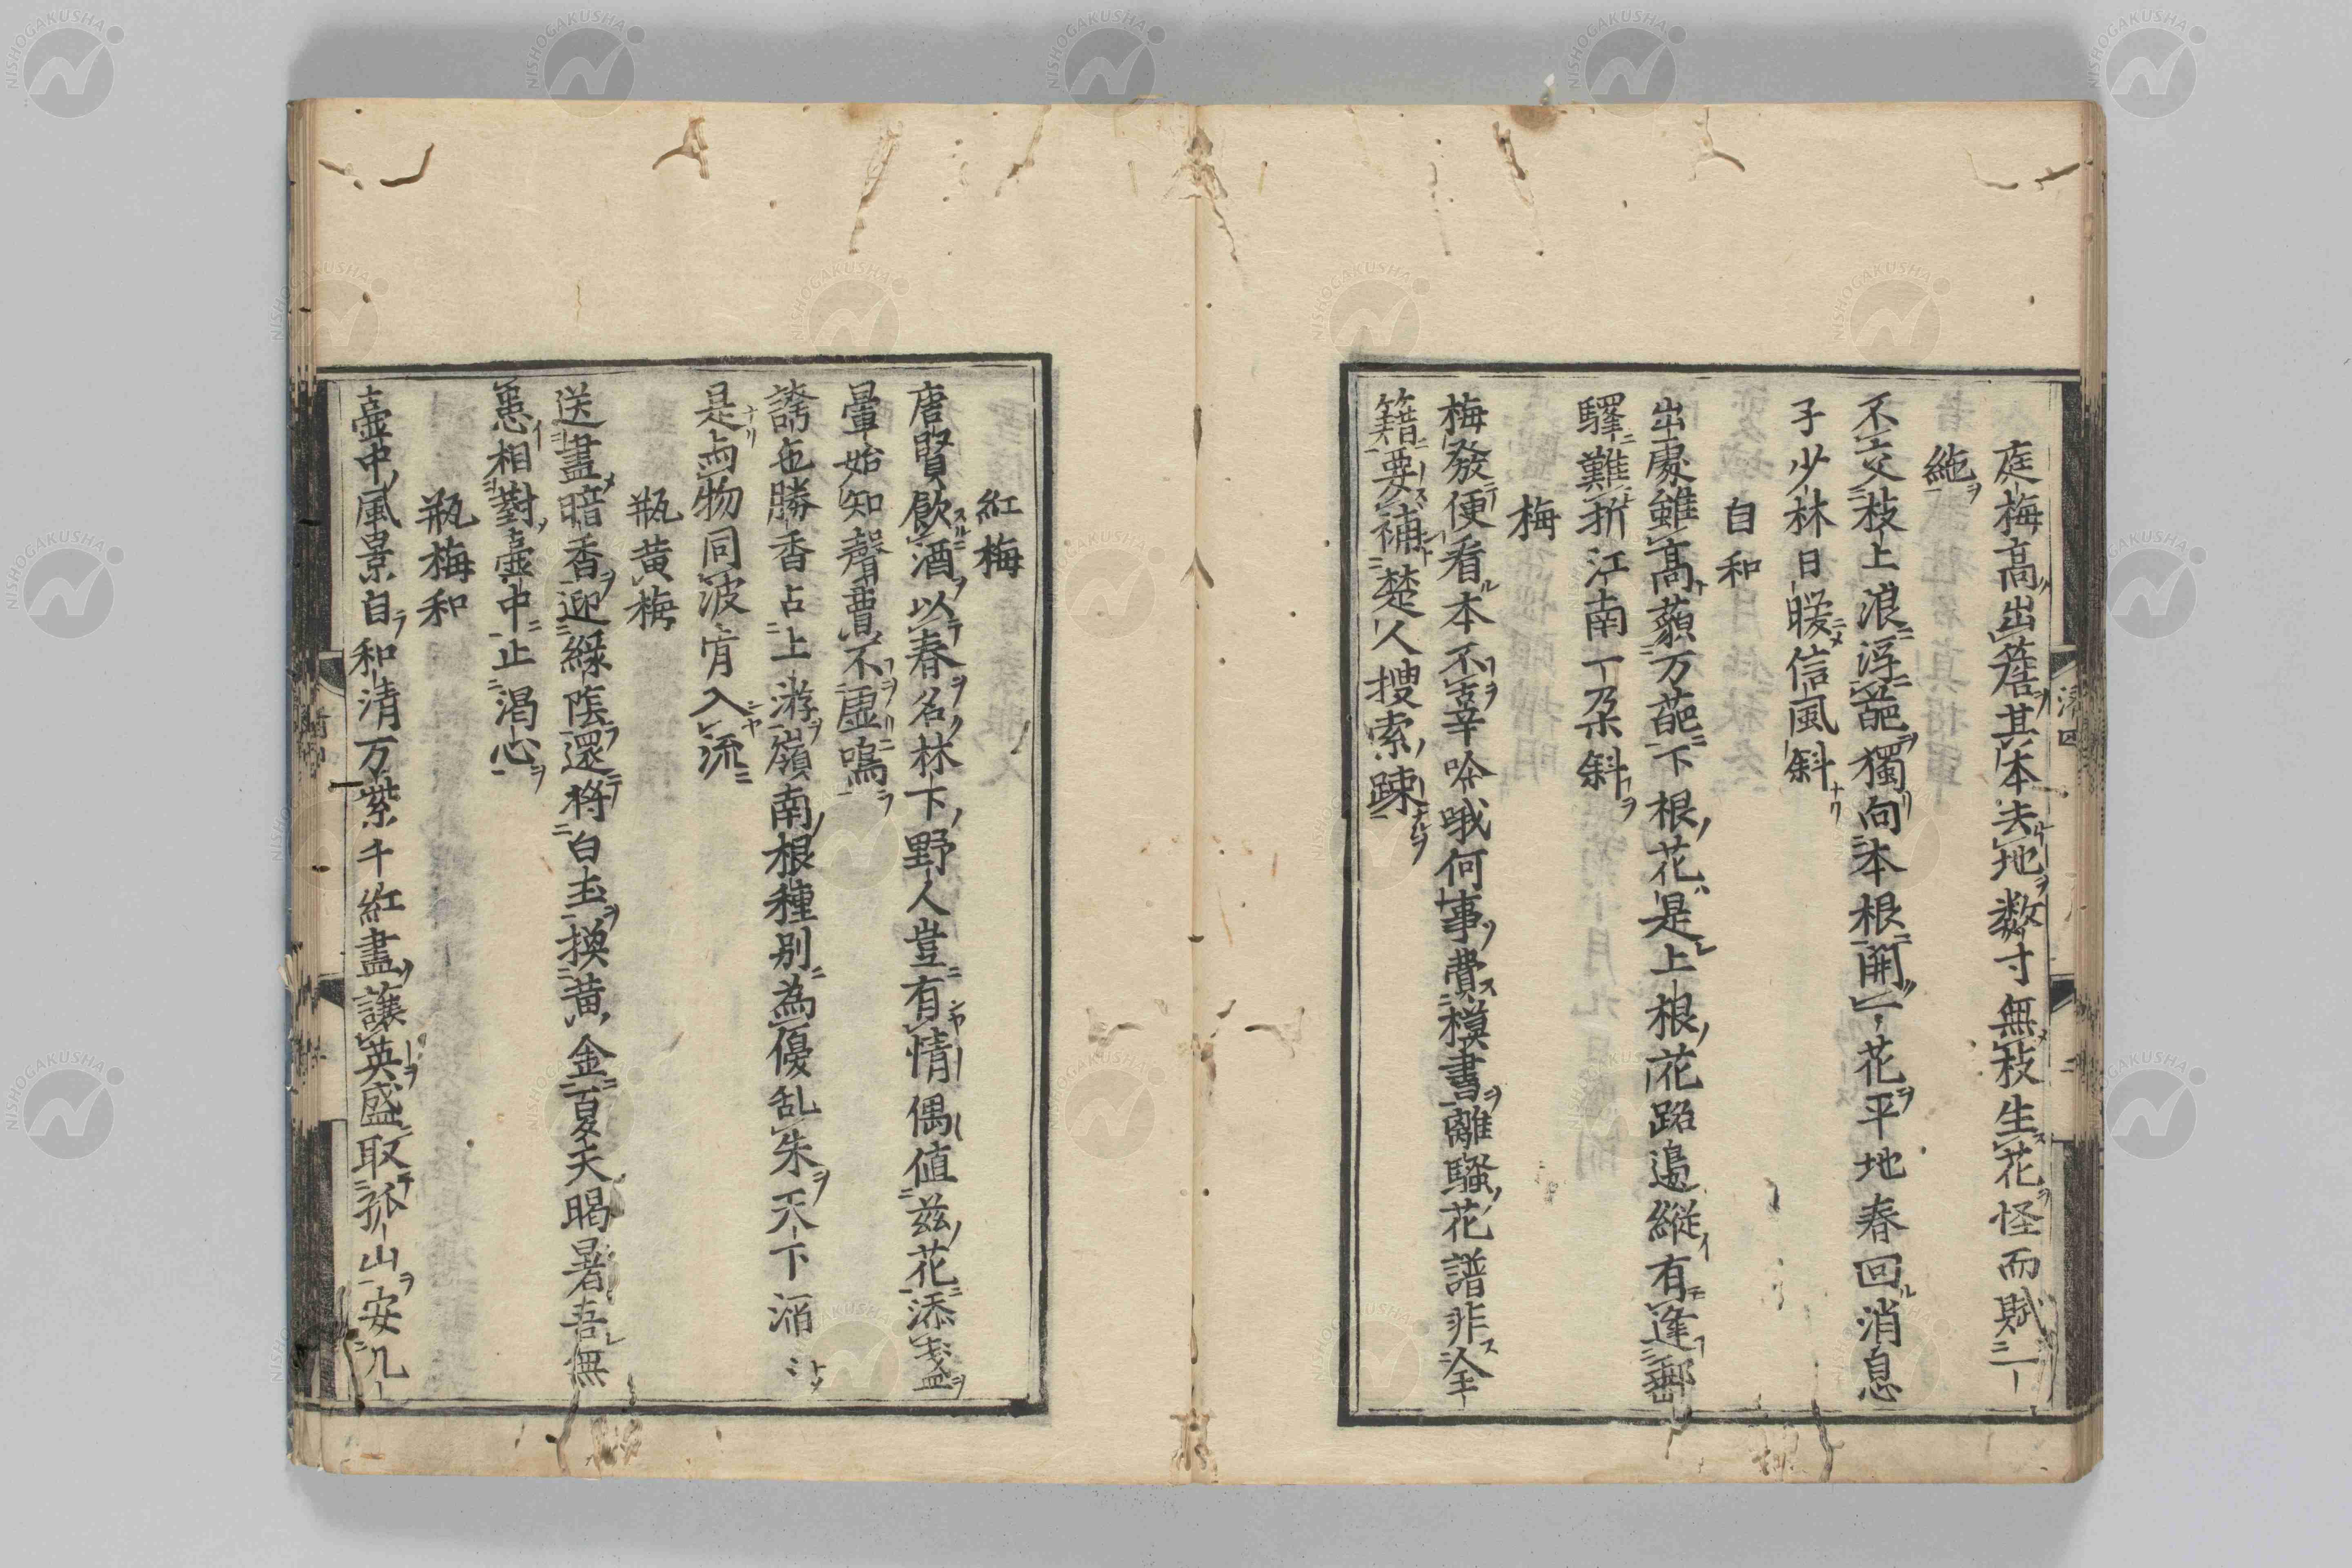 庭梅高出簷其本去地数寸無枝生花怪而賦一
絁
不交枝上浪浮葩獨向本根開一花平地春回消息
子少林日暖信風斜
自和
出處雖高藐万葩下根花是上根花路邉縦有逢郵
驛難折江南一朶斜
梅
梅發便看本不辜吟哦何事費模書離騒花譜非全
籍要補楚人搜索踈
紅梅
唐賢飲酒以春名林下野人豈有情偶値兹花添盞
暈始知聲聞不虚鳴
誇色勝香占上游嶺南根種別為優乱朱天下滔〻
是尚物同波肯入流
瓶黄梅
送盡暗香迎緑陰還将白玉換黄金夏天暍暑吾無
患相對壺中止渇心
瓶梅和
壺中風景自和清万紫千紅盡讓英盛取孤山安几